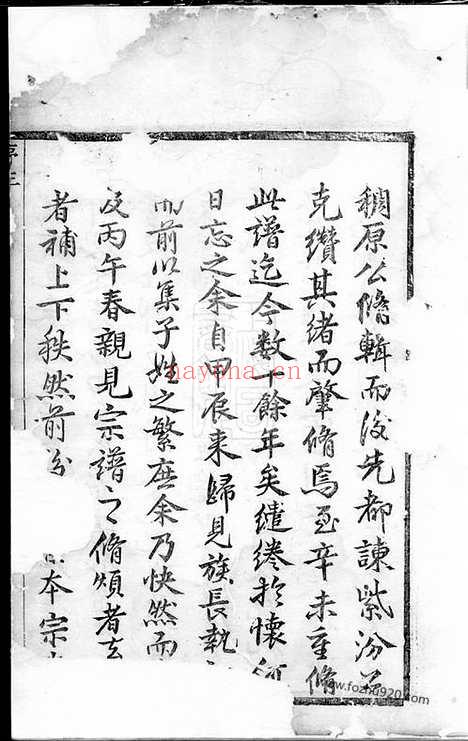 稠原公脩輯而後先都諫紫汾公
克纘其緒而肇脩焉至辛未重脩
此譜迄今數十餘年矣繾綣扵懷何
日忘之余自甲辰来歸見族長執
而前以集子姓之繁庶余乃快然而
及丙午春親見宗譜之脩煩者去
者補上下秩然前汾
本宗
hayona.cn
www.fozhu920.com